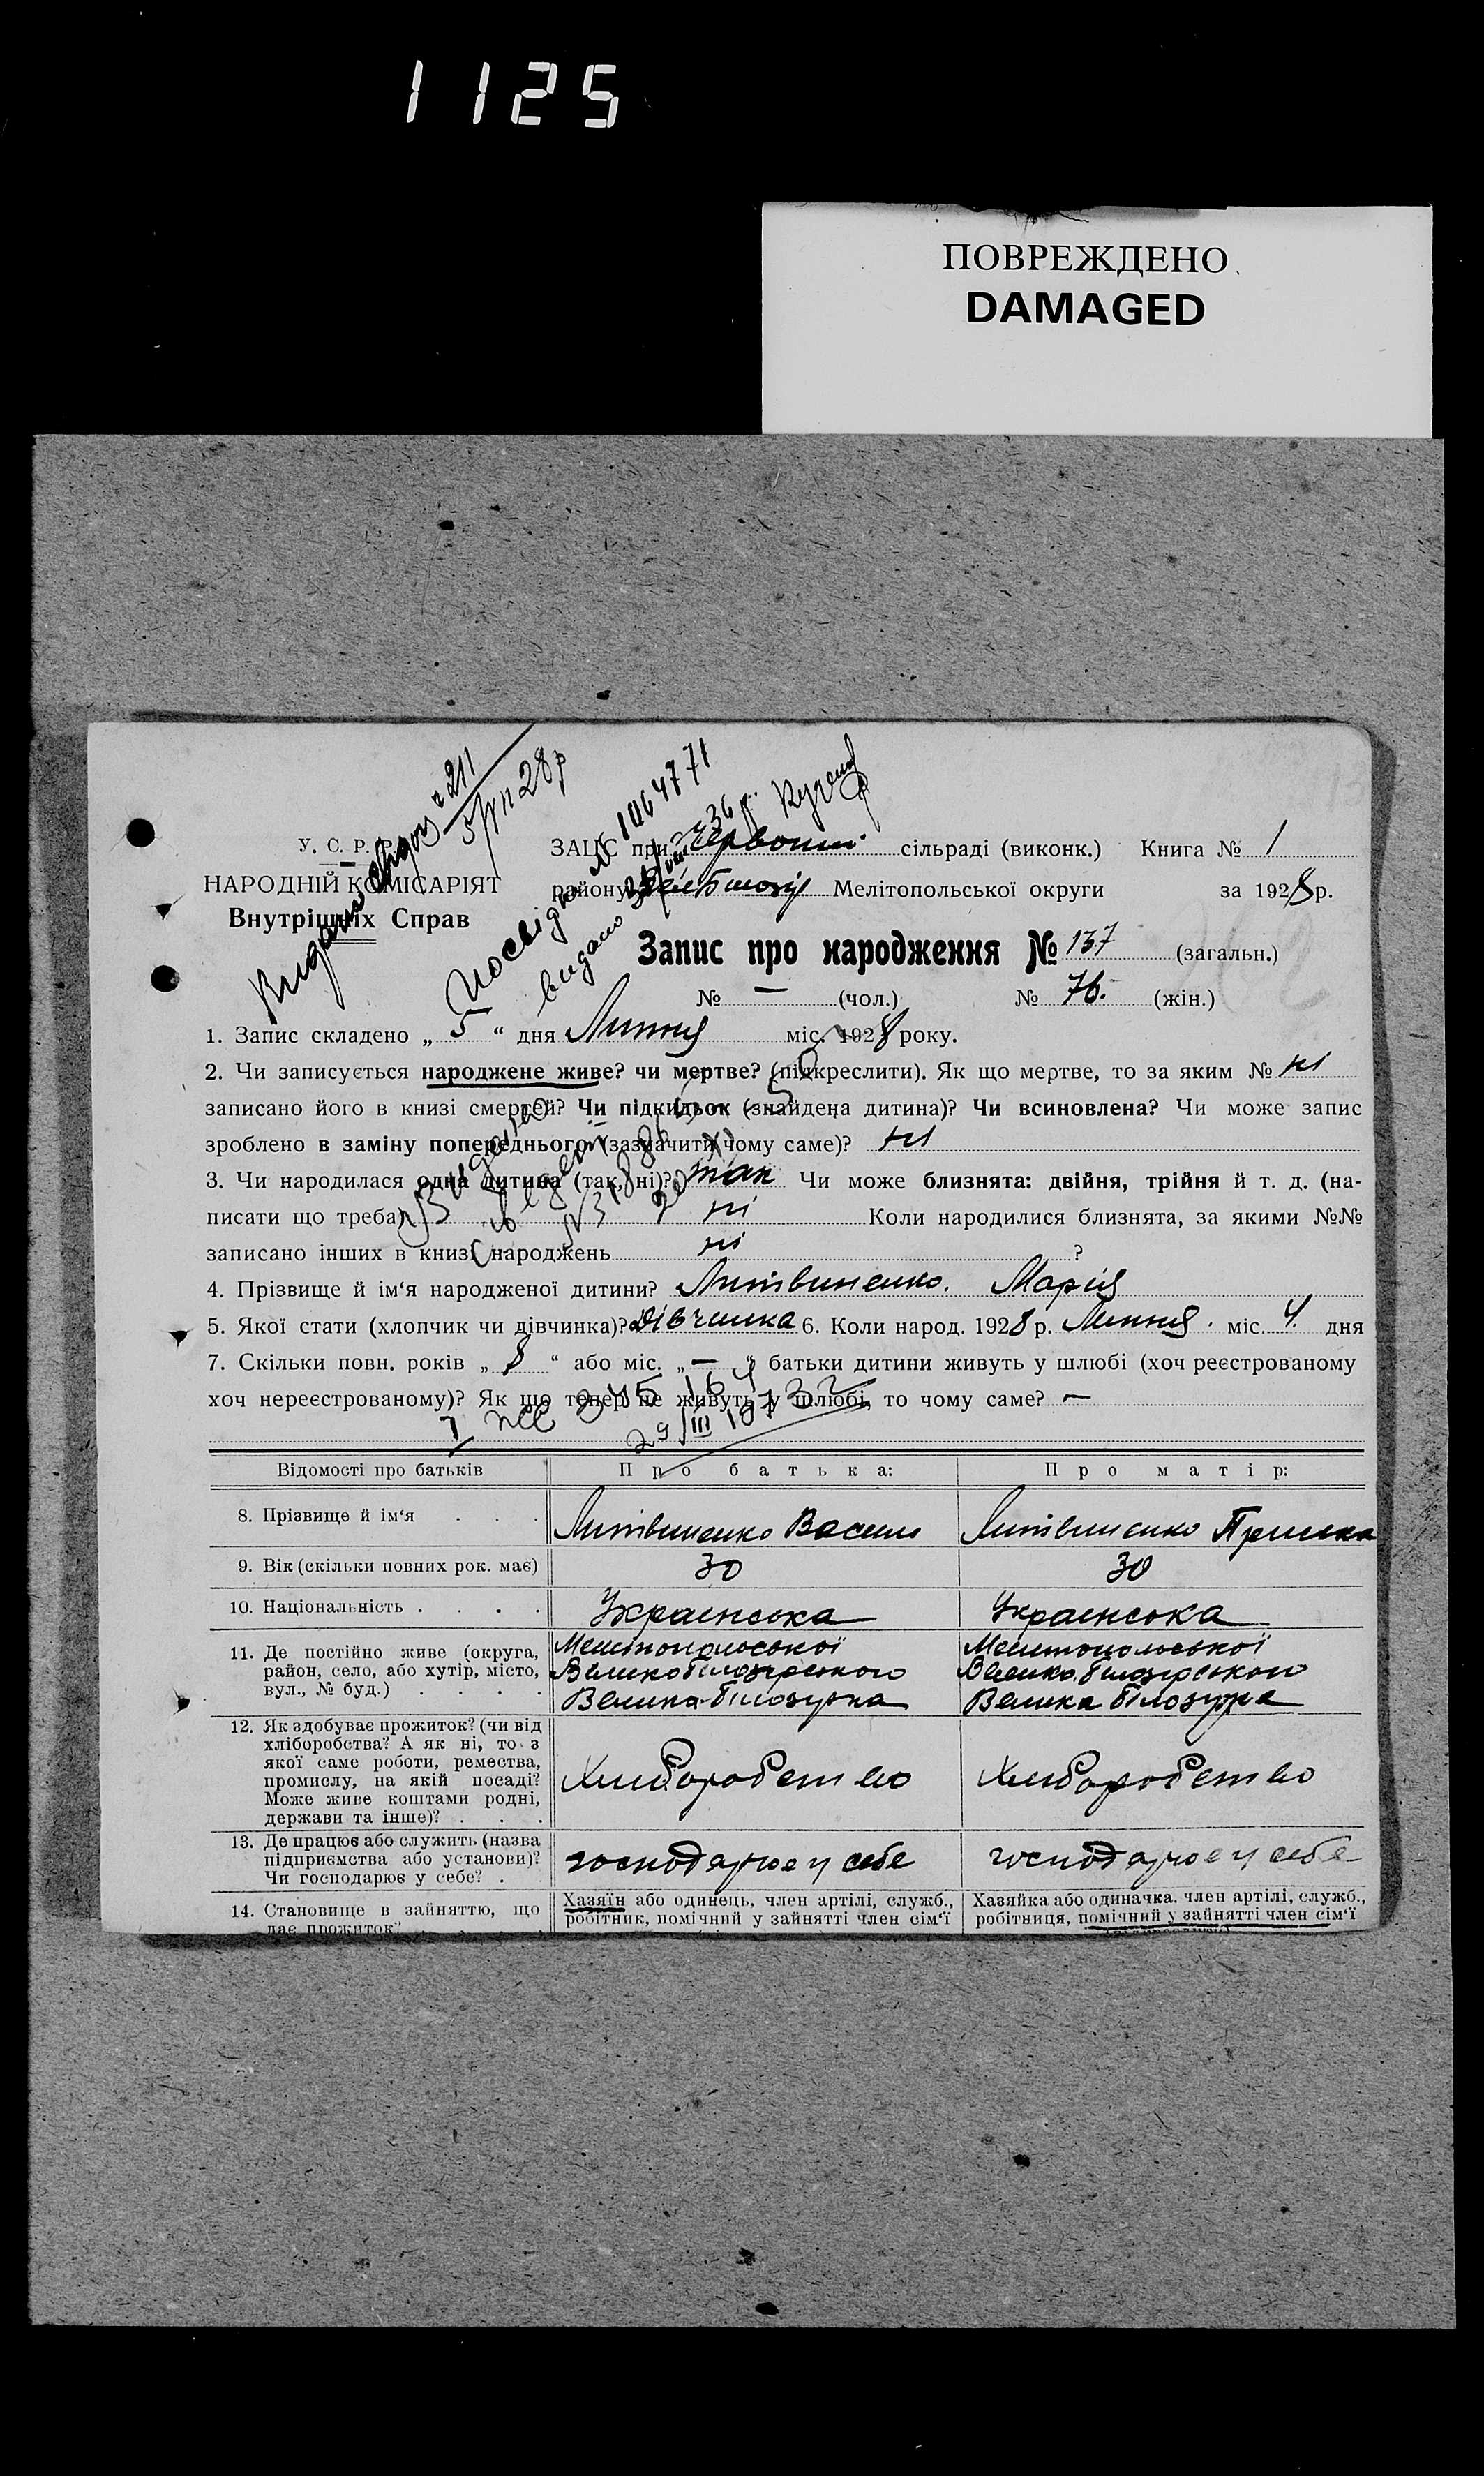 1125
ПОВРЕЖДЕНО
DAMAGED
У. С. Р. Р.
НАРОДНІЙ КОМІСАРІЯТ
Внутрішніх Справ
Видано
211
5/VII 28р
Посвідч № 1064771
видано
36 р.
ЗАЦС при Червоній сільраді (виконк.) Книга № 1
району Мелітопольської округи за 1928 р.
Запис про народження № 137 (загальн.)
№ — (чол.) № 76. (жін.)
1. Запис складено „ 5 “ дня Липня міс. 1928 року.
2. Чи записується народжене живе? чи мертве? (підкреслити). Як що мертве, то за яким № ні
записано його в книзі смертей? Чи підкидьок (знайдена дитина)? Чи всиновлена? Чи може запис
зроблено в заміну попереднього (зазначити чому саме)? ні
3. Чи народилася одна дитина (так, ні)? так Чи може близнята: двійня, трійня й т. д. (на-
писати що треба) ні Коли народилися близнята, за якими №№
записано інших в книзі народжень ні ?
4. Прізвище й ім‘я народженої дитини? Литвиненко. Марія
5. Якої стати (хлопчик чи дівчинка)? дівчинка 6. Коли народ. 1928 р. Липня. міс. 4. дня
7. Скільки повн. років „ 8 “ або міс. „ — “ батьки дитини живуть у шлюбі (хоч реєстрованому
хоч нереєстрованому)? Як що тепер не живуть у шлюбі, то чому саме? —
29/III 1973
Відомості про батьків Про батька: Про матір:
8. Прізвище й ім‘я . . . Литвиненко Василь Литвиненко Приська
9. Вік (скільки повних рок. має) 30 30
10. Національність . . . . Українська Українська
11. Де постійно живе (округа, Мелітопольської Мелитопольської
район, село, або хутір, місто, Великобілозірського Велико білозірського
вул., № буд.) . . . . Велика-білозурка Велика білозурка
12. Як здобуває прожиток? (чи від
хліборобства? А як ні, то з
якої саме роботи, ремества, Хліборобство Хліборобство
промислу, на якій посаді?
Може живе коштами родні,
держави та інше)? . . .
13. Де працює або служить (назва
підприємства або установи)? господарює у себе господарює у себе
Чи господарює у себе? .
14. Становище в зайняттю, що Хазяїн або одинець, член артілі, служб., Хазяйка або одиначка, член артілі, служб.,
дає прожиток? робітник, помічний у зайнятті член сім‘ї робітниця, помічний у зайнятті член сім‘ї